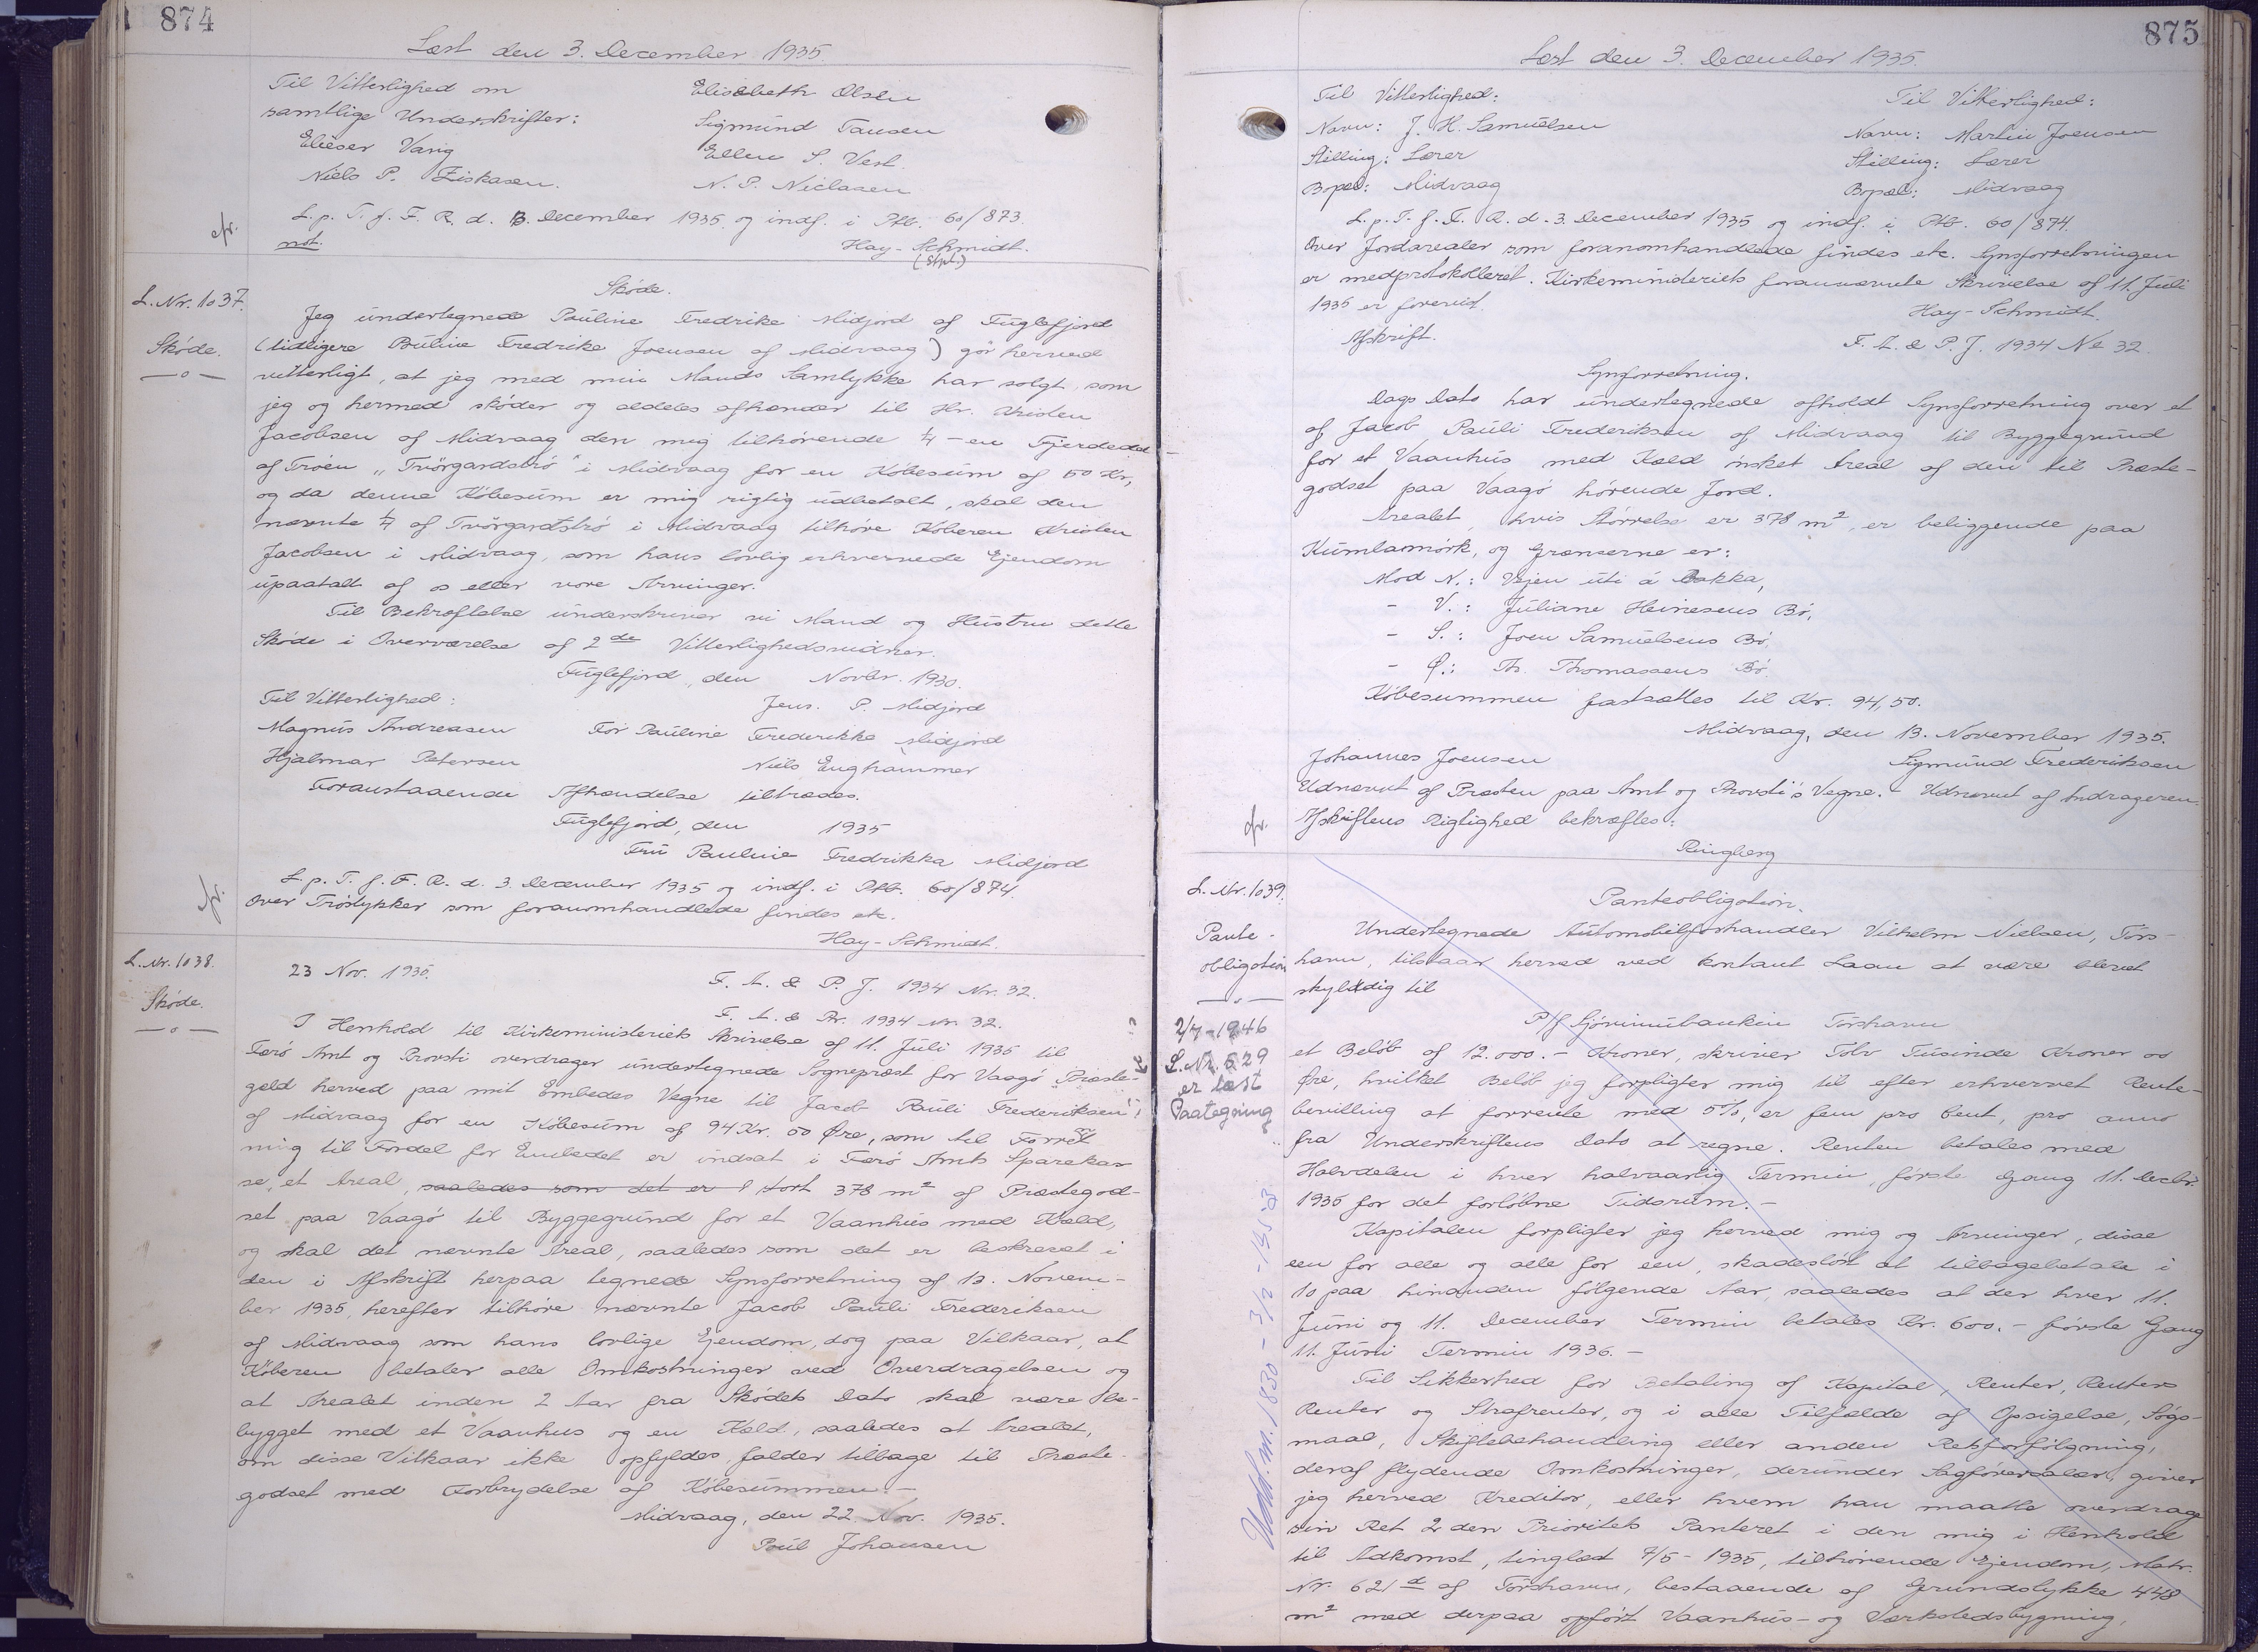 874
Læst den 3. December 1935.
Til Vitterlighed om
samtlige Underskrifter:
Elieser Varig
Niels P. Ziskasen.
Elisabeth Olsen
Sigmund Tausen
Ellen S. Vest.
N. P. Niclasen
L. p. T. f. F. R. d. 3. December 1935 og indf. i Ptb. 60/873.
cfr.
not.
Hay-Schmidt.
(Stpl.)
L. Nr. 1037.
Skøde.
Skøde.
Jeg undertegnede Pauline Fredrike Midjord af Fuglefjord
(tidligere Pauline Fredrike Joensen af Midvaag) gør herved
vitterligt, at jeg med min Mands Samtykke har solgt, som
jeg og hermed skøder og aldeles afhænder til Hr. Kristen
Jacobsen af Midvaag den mig tilhørende 1/4 - en Fjerdedel -
af Trøen "Tvørgardstrø" i Midvaag for en Købesum af 50 Kr,
og da denne Købesum er mig rigtig udbetalt, skal den
nævnte 1/4 af Tvørgardstrø i Midvaag tilhøre Køberen Kristen
Jacobsen i Midvaag, som hans lovlig erhvervede Ejendom
upaatalt af os eller vore Arvinger.
Til Bekræftelse underskriver vi Mand og Hustru dette
Skøde i Overværelse af 2de Vitterlighedsvidner.
Fuglefjord, den Novbr. 1930.
Til Vitterlighed:
Jens. P. Midjord
Magnus Andreasen
For Pauline Frederikke Midjord
Hjalmar Petersen
Niels Enghammer
Foranstaaende Afhændelse tiltrædes.
Fuglefjord, den 1935
Fru Pauline Fredrikka Midjord
cfr.
L. p. T. f. F. R. d. 3. December 1935 og indf. i Ptb. 60/874.
Over Trøstykker som foranomhandlede findes etc.
Hay-Schmidt.
L. Nr. 1038.
Skøde.
23 Nov. 1935.
F. A. & P. J. 1934 Nr. 32.
F. A. & Pr. 1934 Nr. 32.
I Henhold til Kirkeministeriets Skrivelse af 11. Juli 1935 til
Færø Amt og Provsti overdrager undertegnede Sognepræst for Vaagø Præste-
gæld herved paa mit Embedes Vegne til Jacob Pauli Frederiksen
af Midvaag for en Købesum af 94 Kr. 50 Øre, som til Forrent-
ning til Fordel for Embedet er indsat i Færø Amts Sparekas-
se, et Areal, saaledes som det er stort 378 m² af Præstegod-
set paa Vaagø til Byggegrund for et Vaanhus med Kæld,
og skal det nævnte Areal, saaledes som det er beskrevet i
den i Afskrift herpaa tegnede Synsforretning af 13. Novem-
ber 1935, herefter tilhøre nævnte Jacob Pauli Frederiksen
af Midvaag som hans lovlige Ejendom, dog paa Vilkaar, at
Køberen betaler alle Omkostninger ved Overdragelsen og
at Arealet inden 2 Aar fra Skødets Dato skal være be-
bygget med et Vaanhus og en Kæld, saaledes at Arealet,
om disse Vilkaar ikke opfyldes, falder tilbage til Præste-
godset med Fortrydelse af Købesummen. -
Midvaag, den 22. Nov. 1935.
Poul Johansen
875
Læst den 3. December 1935.
Til Vitterlighed:
Navn: J. H. Samuelsen
Stilling: Lærer
Bopæl: Midvaag
Til Vitterlighed:
Navn: Martin Joensen
Stilling: Lærer
Bopæl: Midvaag
L. p. T. f. F. R. d. 3. December 1935 og indf. i Ptb. 60/874.
Over Jordarealer som foranomhandlede findes etc. Synsforretningen
er medprotokolleret. Kirkeministeriets forannævnte Skrivelse af 11. Juli
1935 er forevist.
Hay-Schmidt.
Afskrift.
F. A. & P. J. 1934 No 32.
Synsforretning.
Dags Dato har undertegnede afholdt Synsforretning over et
af Jacob Pauli Frederiksen af Midvaag til Byggegrund
for et Vaanhus med Kæld ønsket Areal af den til Præste-
godset paa Vaagø hørende Jord.
Arealet, hvis Størrelse er 378 m², er beliggende paa
Kumlamørk, og Grænserne er:
Mod N.: Vejen uti á Bakka,
- V.: Juliane Heinesens Bø,
- S.: Joen Samuelsens Bø,
- Ø.: Th. Thomassens Bø.
Købesummen fastsættes til Kr. 94,50.
Midvaag, den 13. November 1935.
Johannes Joensen
Sigmund Frederiksen
Udnævnt af Præsten paa Amt og Provsti's Vegne. - Udnævnt af Andrageren.
cfr.
Afskriftens Rigtighed bekræftes:
Ringberg
L. Nr. 1039.
Pante-
obligation
Panteobligation.
Undertegnede Automobilforhandler Vilhelm Nielsen, Tórs-
havn, tilstaar herved ved kontant Laan at være blevet
skyldig til
P/f Sjóvinnubankin Tórshavn
2/7-1946
L. Nr. 529
er læst
Paategning
et Beløb af 12.000.- Kroner, skriver Tolv Tusinde Kroner 00
Øre, hvilket Beløb jeg forpligter mig til efter erhvervet Rente-
bevilling at forrente med 5%, er fem pro Cent, pro anno
fra Underskriftens Dato at regne. Renten betales med
Halvdelen i hver halvaarlig Termin, første Gang 11. Decbr.
1935 for det forløbne Tidsrum. -
Kapitalen forpligter jeg herved mig og Arvinger, disse
een for alle og alle for een, skadesløst at tilbagebetale i
10 paa hinanden følgende Aar, saaledes at der hver 11.
Juni og 11. December Termin betales Kr. 600.- første Gang
11. Juni Termin 1936. -
Til Sikkerhed for Betaling af Kapital, Renter, Renters
Renter og Strafrenter, og i alle Tilfælde af Opsigelse, Søgs-
maal, Skiftebehandling eller anden Retsforfølgning,
deraf flydende Omkostninger, derunder Sagførersalær, giver
jeg herved Kreditor, eller hvem han maatte overdrage
sin Ret 2den Prioritets Panteret i den mig i Henhold
til Adkomst, tinglæst 7/5-1935, tilhørende Ejendom, Matr.
Nr. 621 d af Tórshavn, bestaaende af Grundstykke 448
m² med derpaa opført Vaanhus- og Værkstedsbygning,